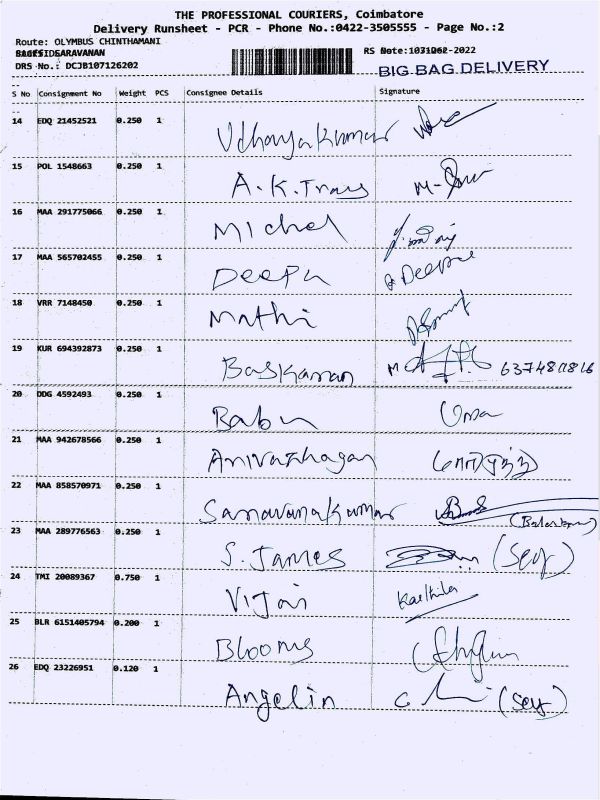 THE PROFESSIONAL COURIERS, Coimbatore
Delivery Runsheet - PCR - Phone No.:0422-3505555 - Page No.:2
Route: OLYMBUS CHINTHAMANI
SARAVANAN
DRS No.: DCJB107126202
RS
BIG BAG DELIVERY
S No Consignment No Weight PCS Consignee Details Signature
14 EDQ 21452521 0.250 1 Udhayakumar
15 POL 1548663 0.250 1 A.K.Trays
16 MAA 291775066 0.250 1 Michel
17 MAA 565702455 0.250 1 Deepa Deepa
18 VRR 7148450 0.250 1 Mathi
19 KUR 694392873 0.250 1 Baskaran
20 DDG 4592493 0.250 1 Babu Uma
21 MAA 942678566 0.250 1 Arivazhagan
22 MAA 858570971 0.250 1 Saravanakumar
23 MAA 289776563 0.250 1 S.James (Sey)
24 TMI 20089367 0.750 1 Vijai Karthika
25 BLR 6151405794 0.200 1 Blooms
26 EDQ 23226951 0.120 1 Angelin (Sey)